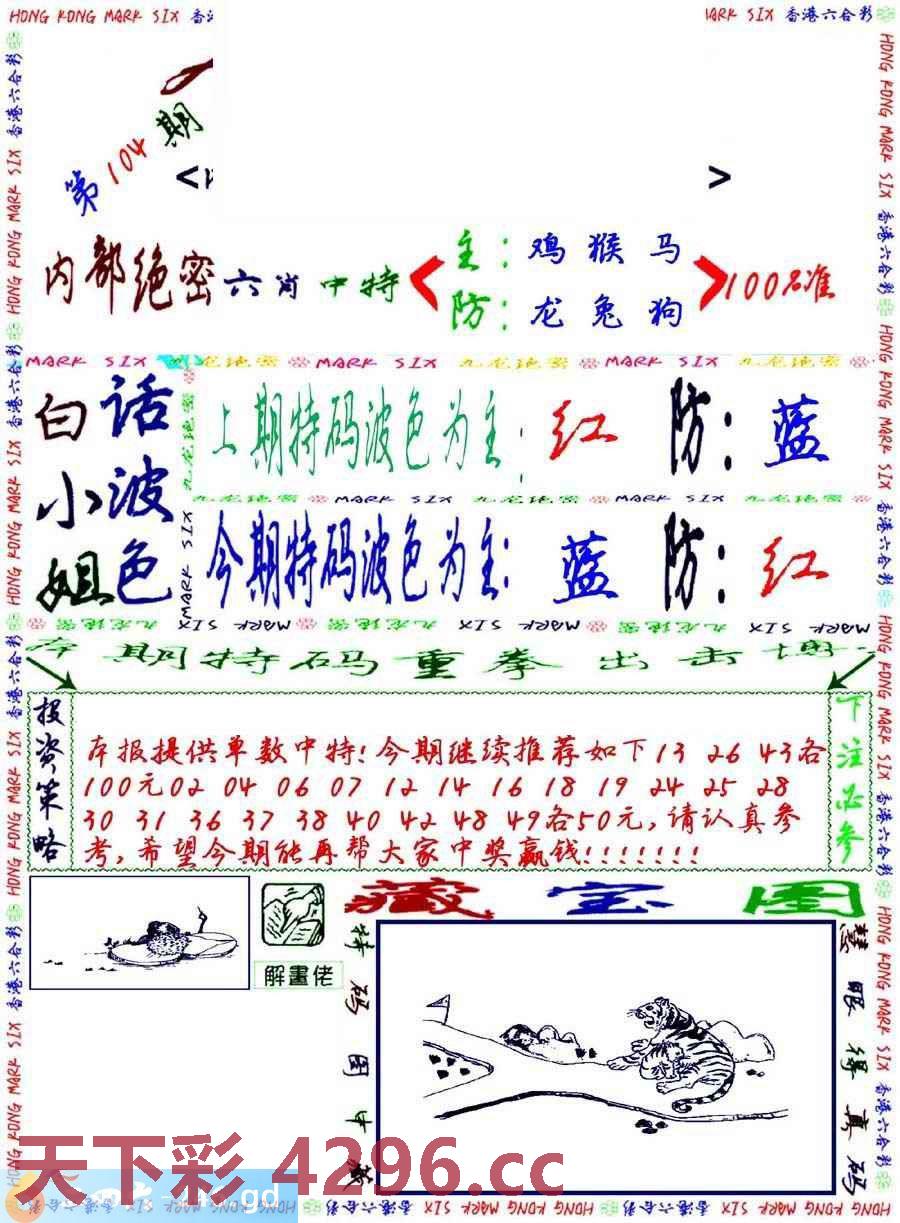 HONG KONG MARK SIX 香港
MARK SIX 香港六合彩
第104期
< >
内部绝密六肖中特
主：鸡猴马
防：龙兔狗
100%准
MARK SIX 九龙地密 MARK SIX 九龙地密 MARK SIX 九龙地密
白话小波姐色
上期特码波色为主：红 防：蓝
九龙地密 MARK SIX 九龙地密 MARK SIX 九龙地密
今期特码波色为主：蓝 防：红
MARK SIX 九龙地密 MARK SIX 九龙地密 MARK SIX
期特码重拳出击
投资策略
本报提供单数中特！今期继续推荐如下13 26 43各
100元02 04 06 07 12 14 16 18 19 24 25 28
30 31 36 37 38 40 42 48 49各50元，请认真参
考，希望今期能再帮大家中奖赢钱！！！！！！！
下注必参
解畫佬
藏宝图
特码图中藏
慧眼得真码
天下彩 4296.cc
gd
HONG KONG MARK SIX 香港六合彩